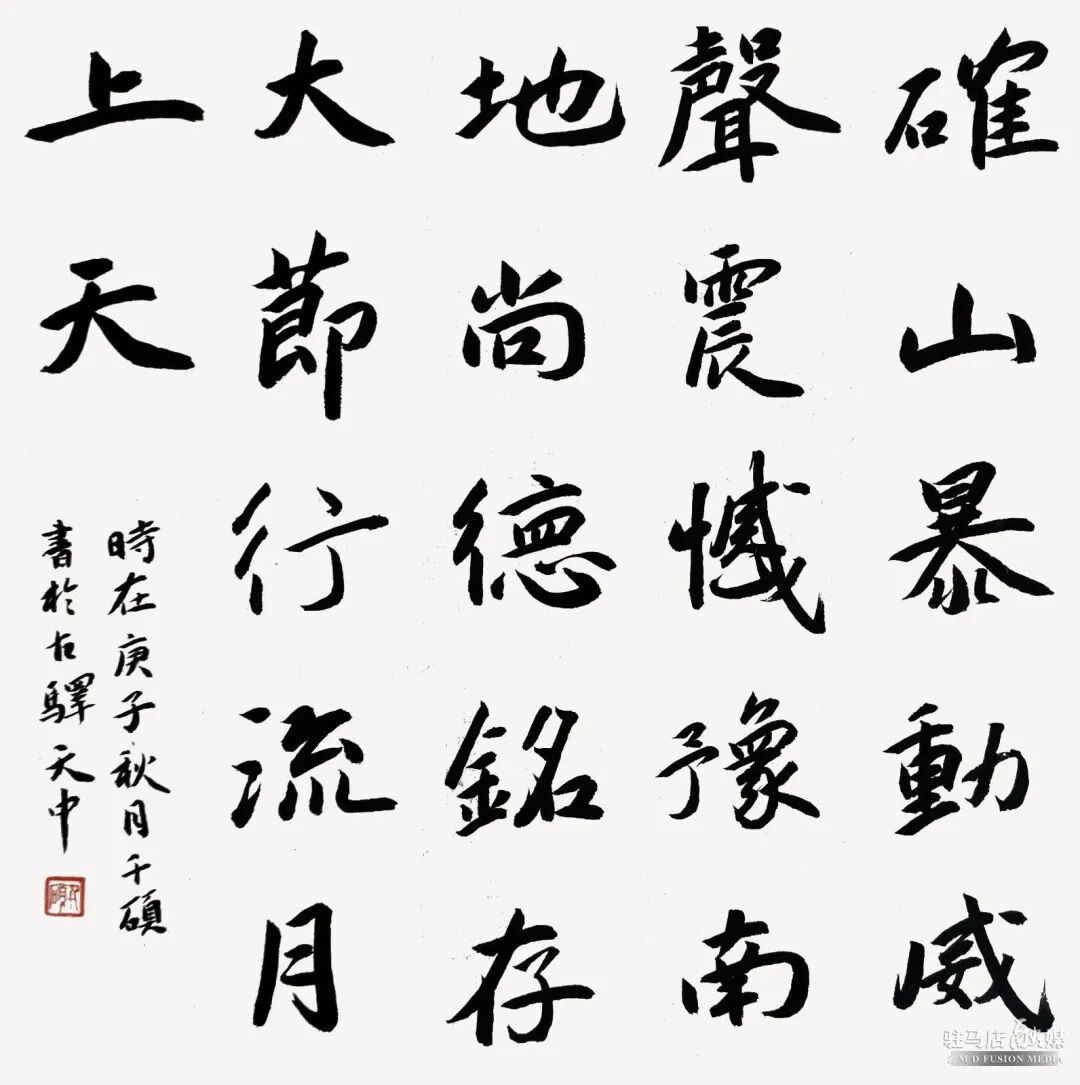 確山暴動威
聲震憾豫南
地尚德銘存
大節行流月
上天
時在庚子秋月千碩
書於古驛天中
驻马店融媒
Z M D FUSION MEDIA